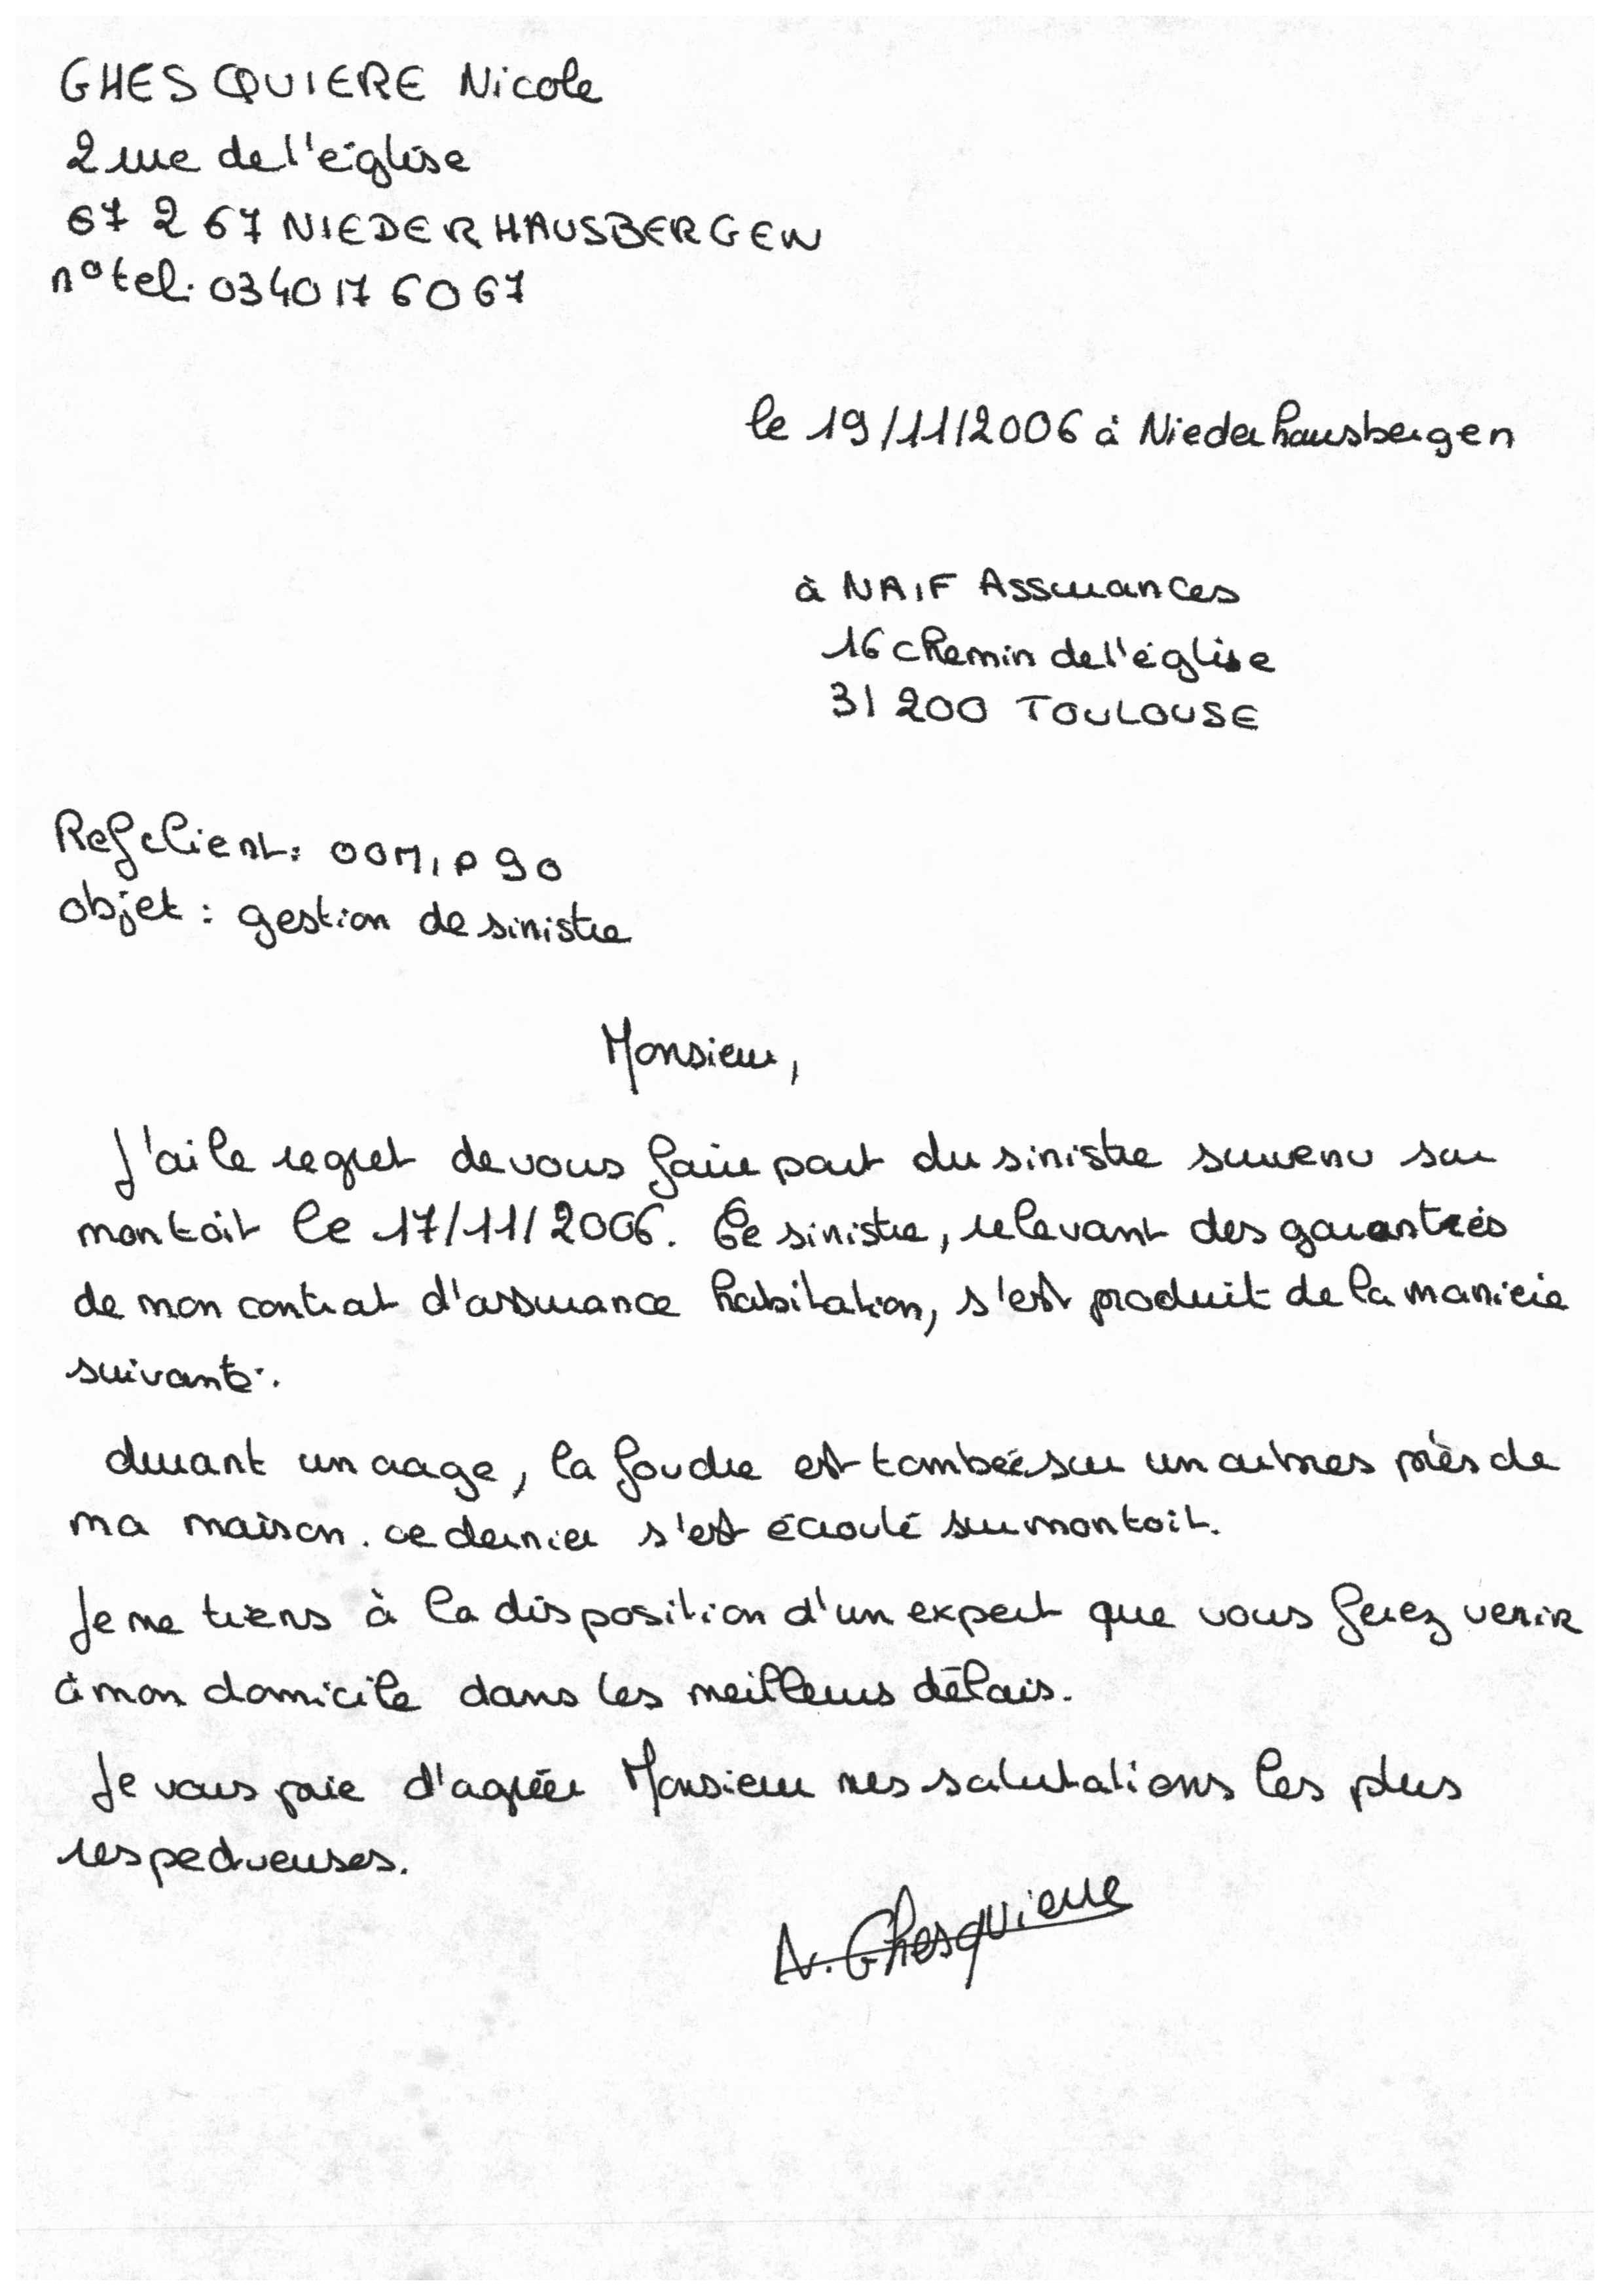 GHESQUIERE Nicole
2 rue de l'église
67 267 NIEDERHAUSBERGEN
n° tel. 03 40 17 60 67
le 19/11/2006 à Niederhausbergen
à NAIF Assurances
16 chemin de l'église
31 200 TOULOUSE
Ref client: 00MIP90
objet : gestion de sinistre
Monsieur,
J'ai le regret de vous faire part du sinistre survenu sur
mon toit le 17/11/2006. Ce sinistre, relevant des garanties
de mon contrat d'assurance habitation, s'est produit de la manière
suivante.
durant un orage, la foudre est tombée sur un arbres près de
ma maison. ce dernier s'est écroulé sur mon toit.
Je me tiens à la disposition d'un expert que vous ferez venir
à mon domicile dans les meilleurs délais.
Je vous prie d'agréer Monsieur mes salutations les plus
respectueuses.
N. Ghesquiere